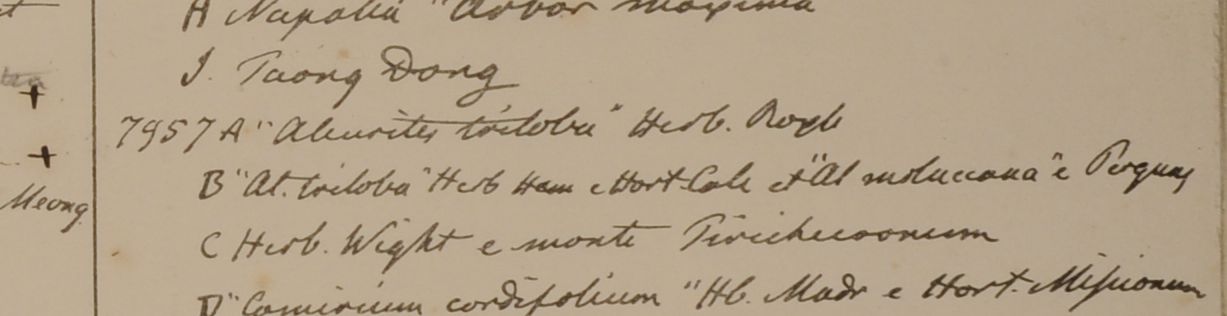 H Napalia "Arbor maxima
J. Taong Dong
+
7957 A "Aleurites triloba" Herb. Royle
+
B "Al. triloba" Herb Ham e Hort Calc et "Al moluccana" e
Meong
C Herb. Wight e monte
D "Camirium cordifolium "Hb. Madr e Hort. Missionum